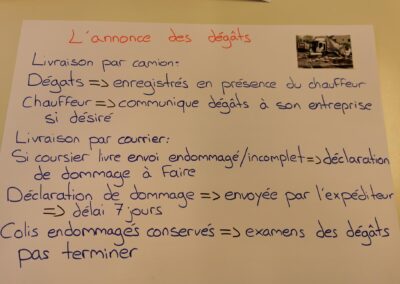 L'annonce des dégâts
Livraison par camion:
Dégats => enregistrés en présence du chauffeur
Chauffeur => communique dégâts à son entreprise
si désiré
Livraison par courrier:
Si coursier livre envoi endommagé/incomplet => déclaration
de dommage à faire
Déclaration de dommage => envoyée par l'expéditeur
=> délai 7 jours
Colis endommagés conservés => examens des dégâts
pas terminer